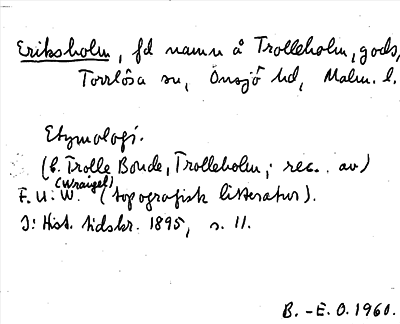 Eriksholm, fd namn å Trolleholm, gods,
Torrlösa sn, Onsjö hd, Malm. l.
Etymologi.
(C. Trolle Bonde, Trolleholm; rec. av)
(Wrangel)
F. U. W. (topografisk litteratur).
I: Hist. tidskr. 1895, s. 11.
B.-E. O. 1960.